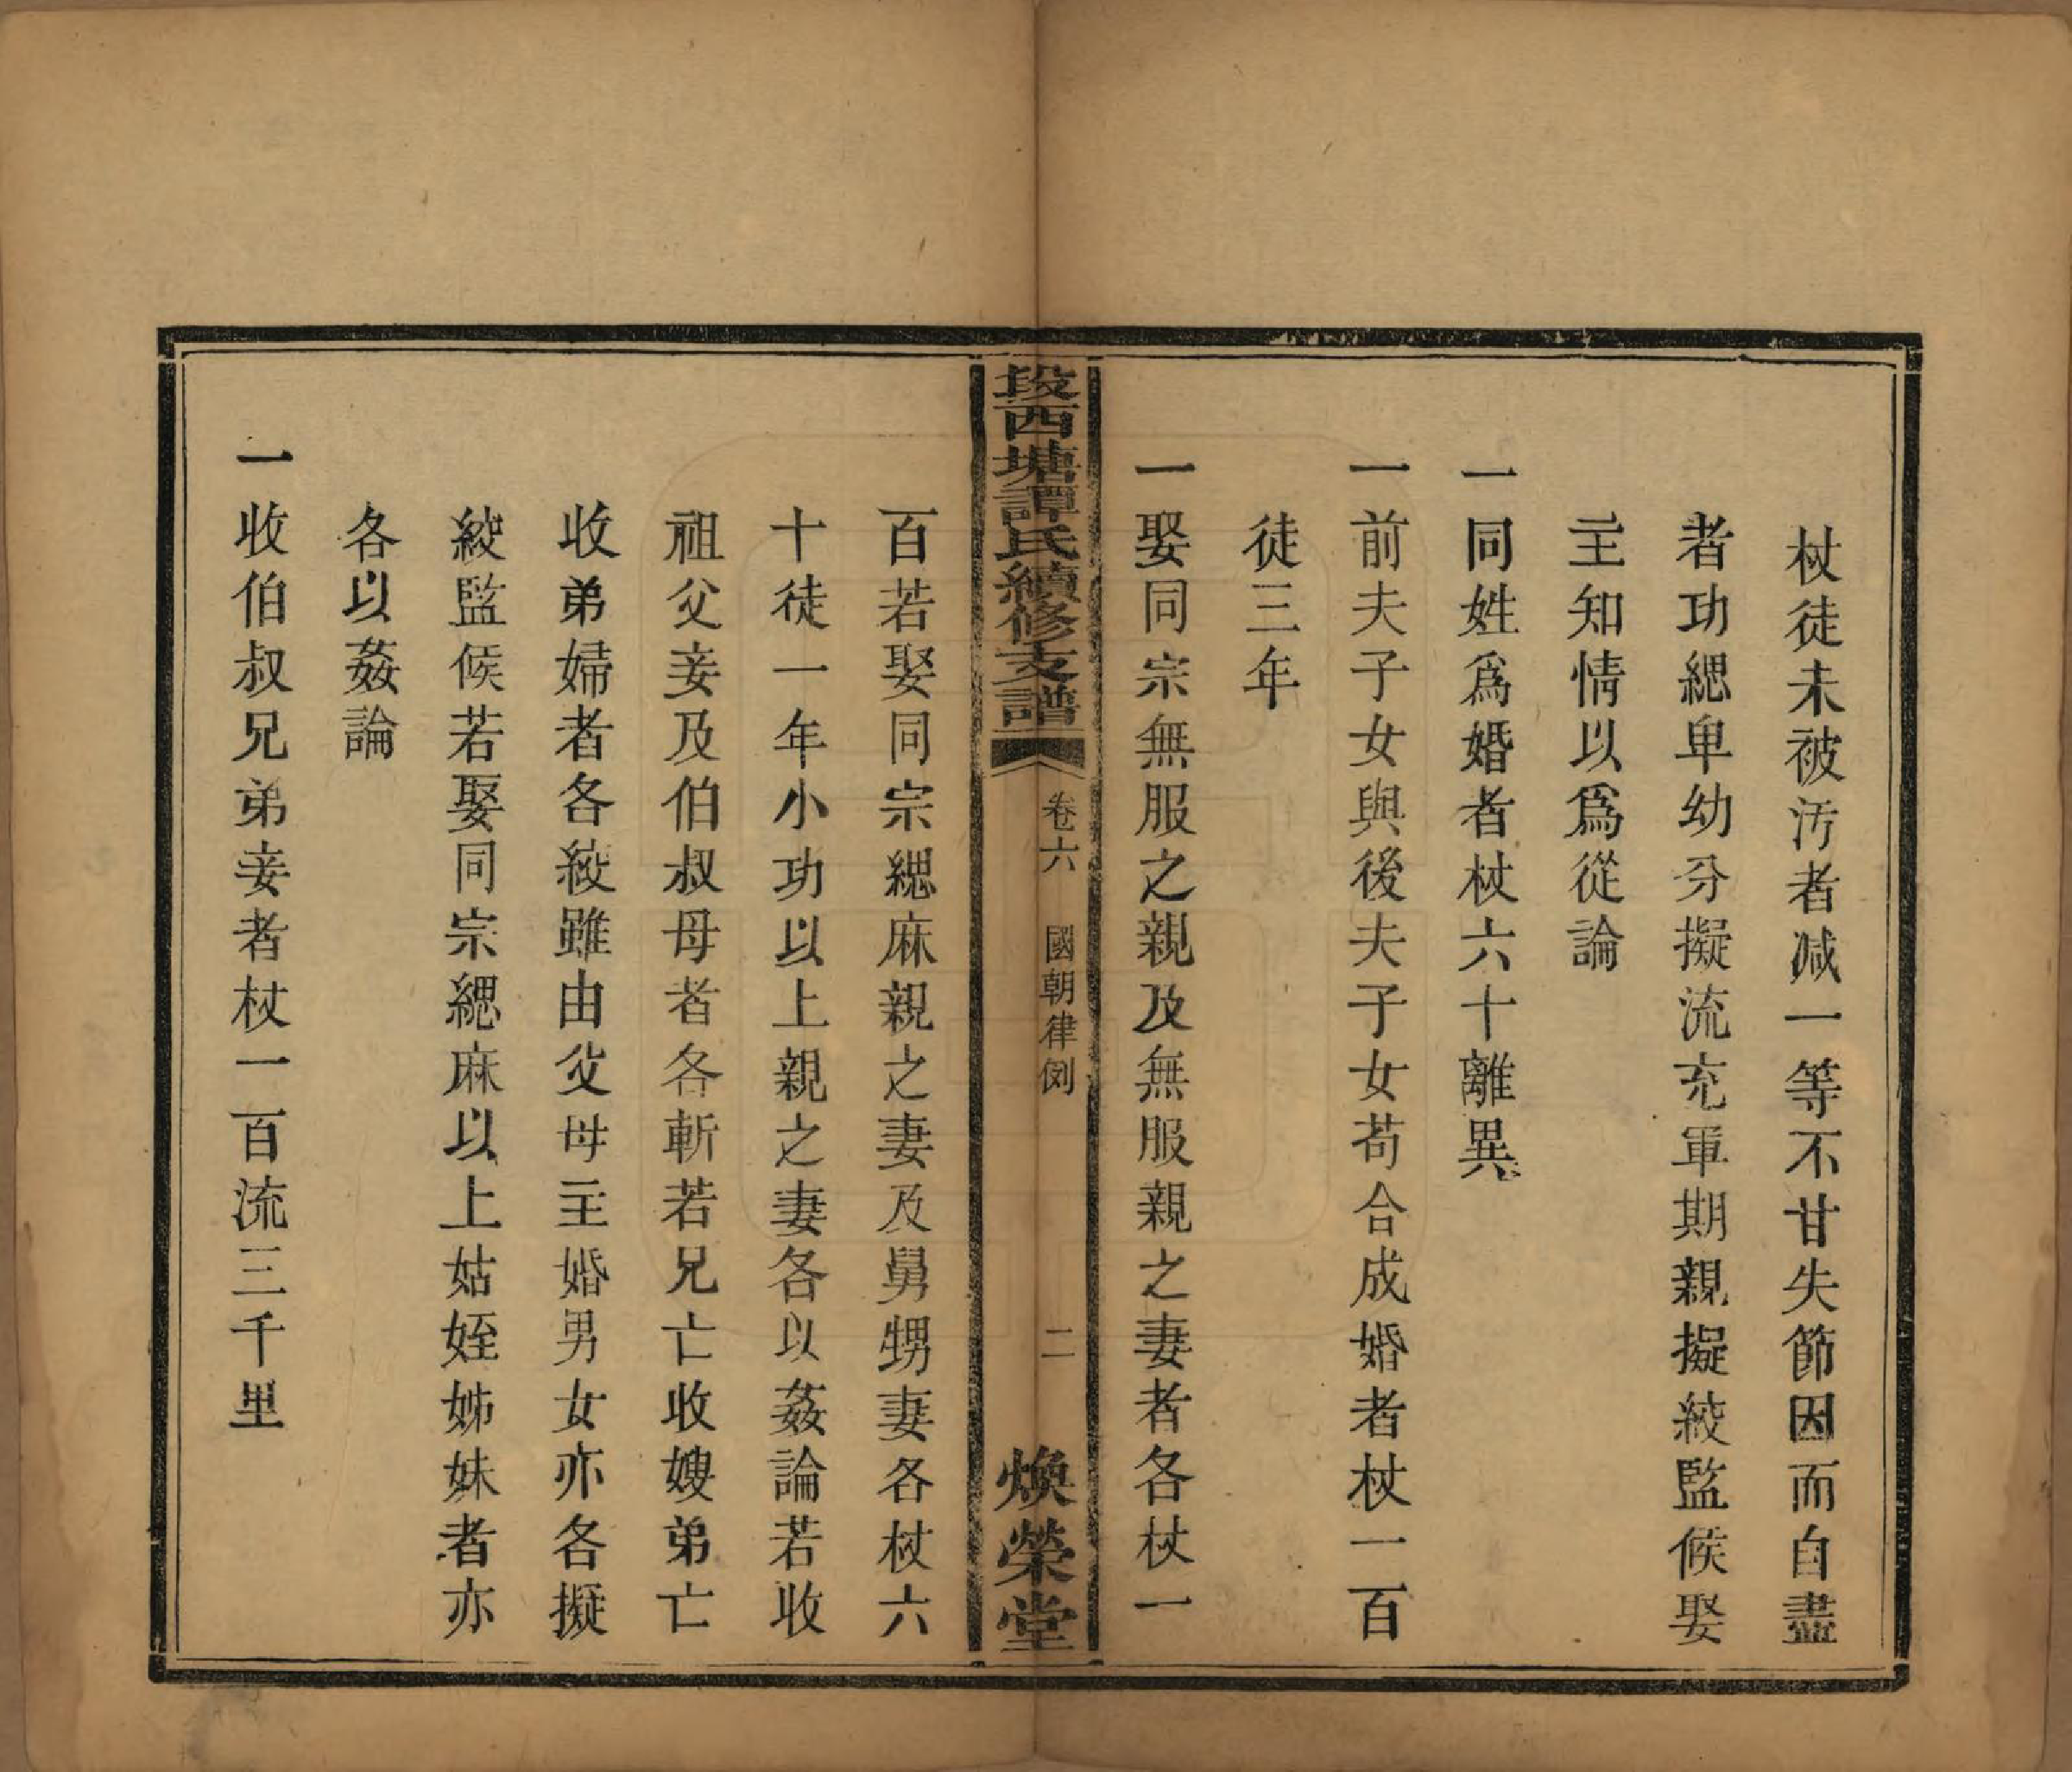 杖徒未被汚者减一等不甘失節因而自盡
者功緦卑幼分擬流充軍期親擬絞監候娶
主知情以爲從論
一同姓爲婚者杖六十離異
一前夫子女與後夫子女苟合成婚者杖一百
徒三年
一娶同宗無服之親及無服親之妻者各杖一
段西塘譚氏續修支譜
卷六
國朝律例
二
煥榮堂
百若娶同宗緦麻親之妻及舅甥妻各杖六
十徒一年小功以上親之妻各以姦論若收
祖父妾及伯叔母者各斬若兄亡收嫂弟亡
收弟婦者各絞雖由父母主婚男女亦各擬
絞監候若娶同宗緦麻以上姑姪姊妹者亦
各以姦論
一收伯叔兄弟妾者杖一百流三千里